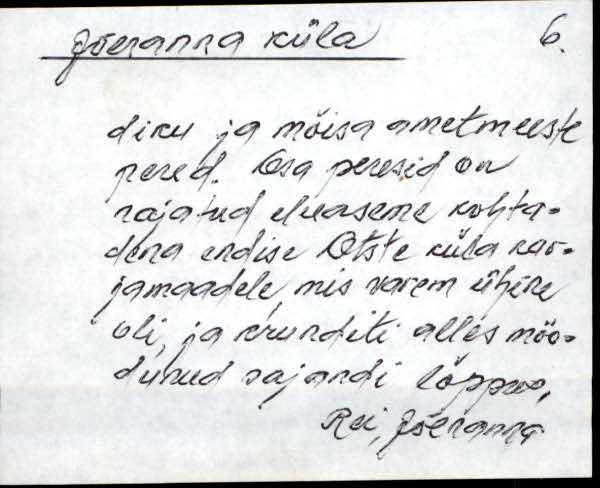 Jõeranna küla 6.
diku ja mõisa ametmeeste
pered. Osa peresid on
rajatud eluaseme kohta-
dena endise Otste küla kar-
jamaadele, mis varem ühine
oli, ja krunditi alles möö-
dunud sajandi lõppus.
Rei, Jõeranna